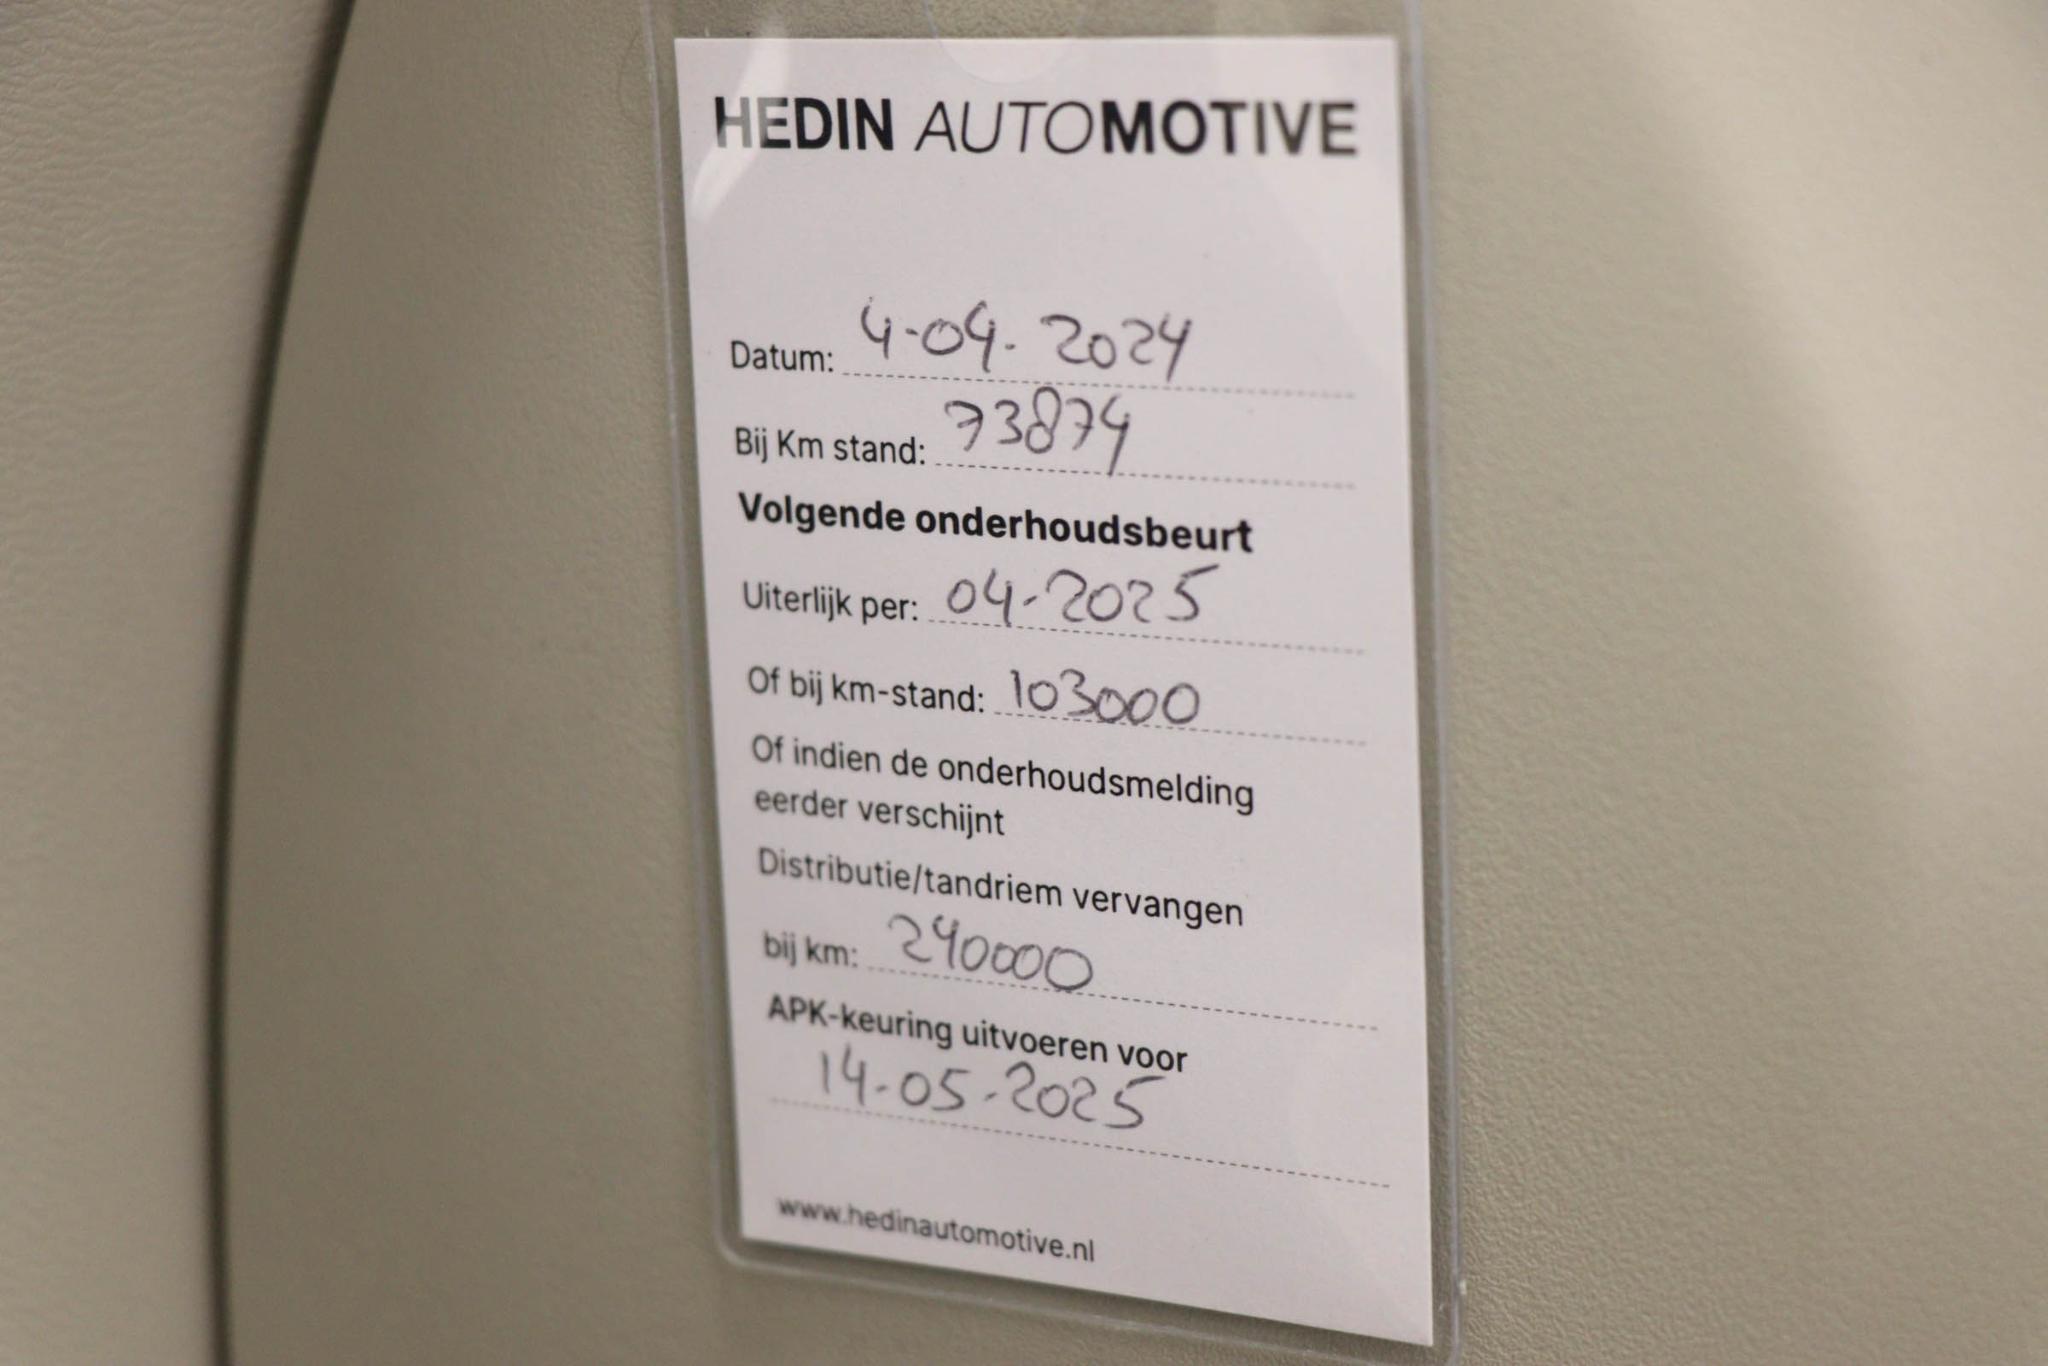 HEDIN AUTOMOTIVE
Datum: 4-04-2024
Bij Km stand: 73874
Volgende onderhoudsbeurt
Uiterlijk per: 04-2025
Of bij km-stand: 103000
Of indien de onderhoudsmelding
eerder verschijnt
Distributie/tandriem vervangen
bij km: 240000
APK-keuring uitvoeren voor
14-05-2025
www.hedinautomotive.nl